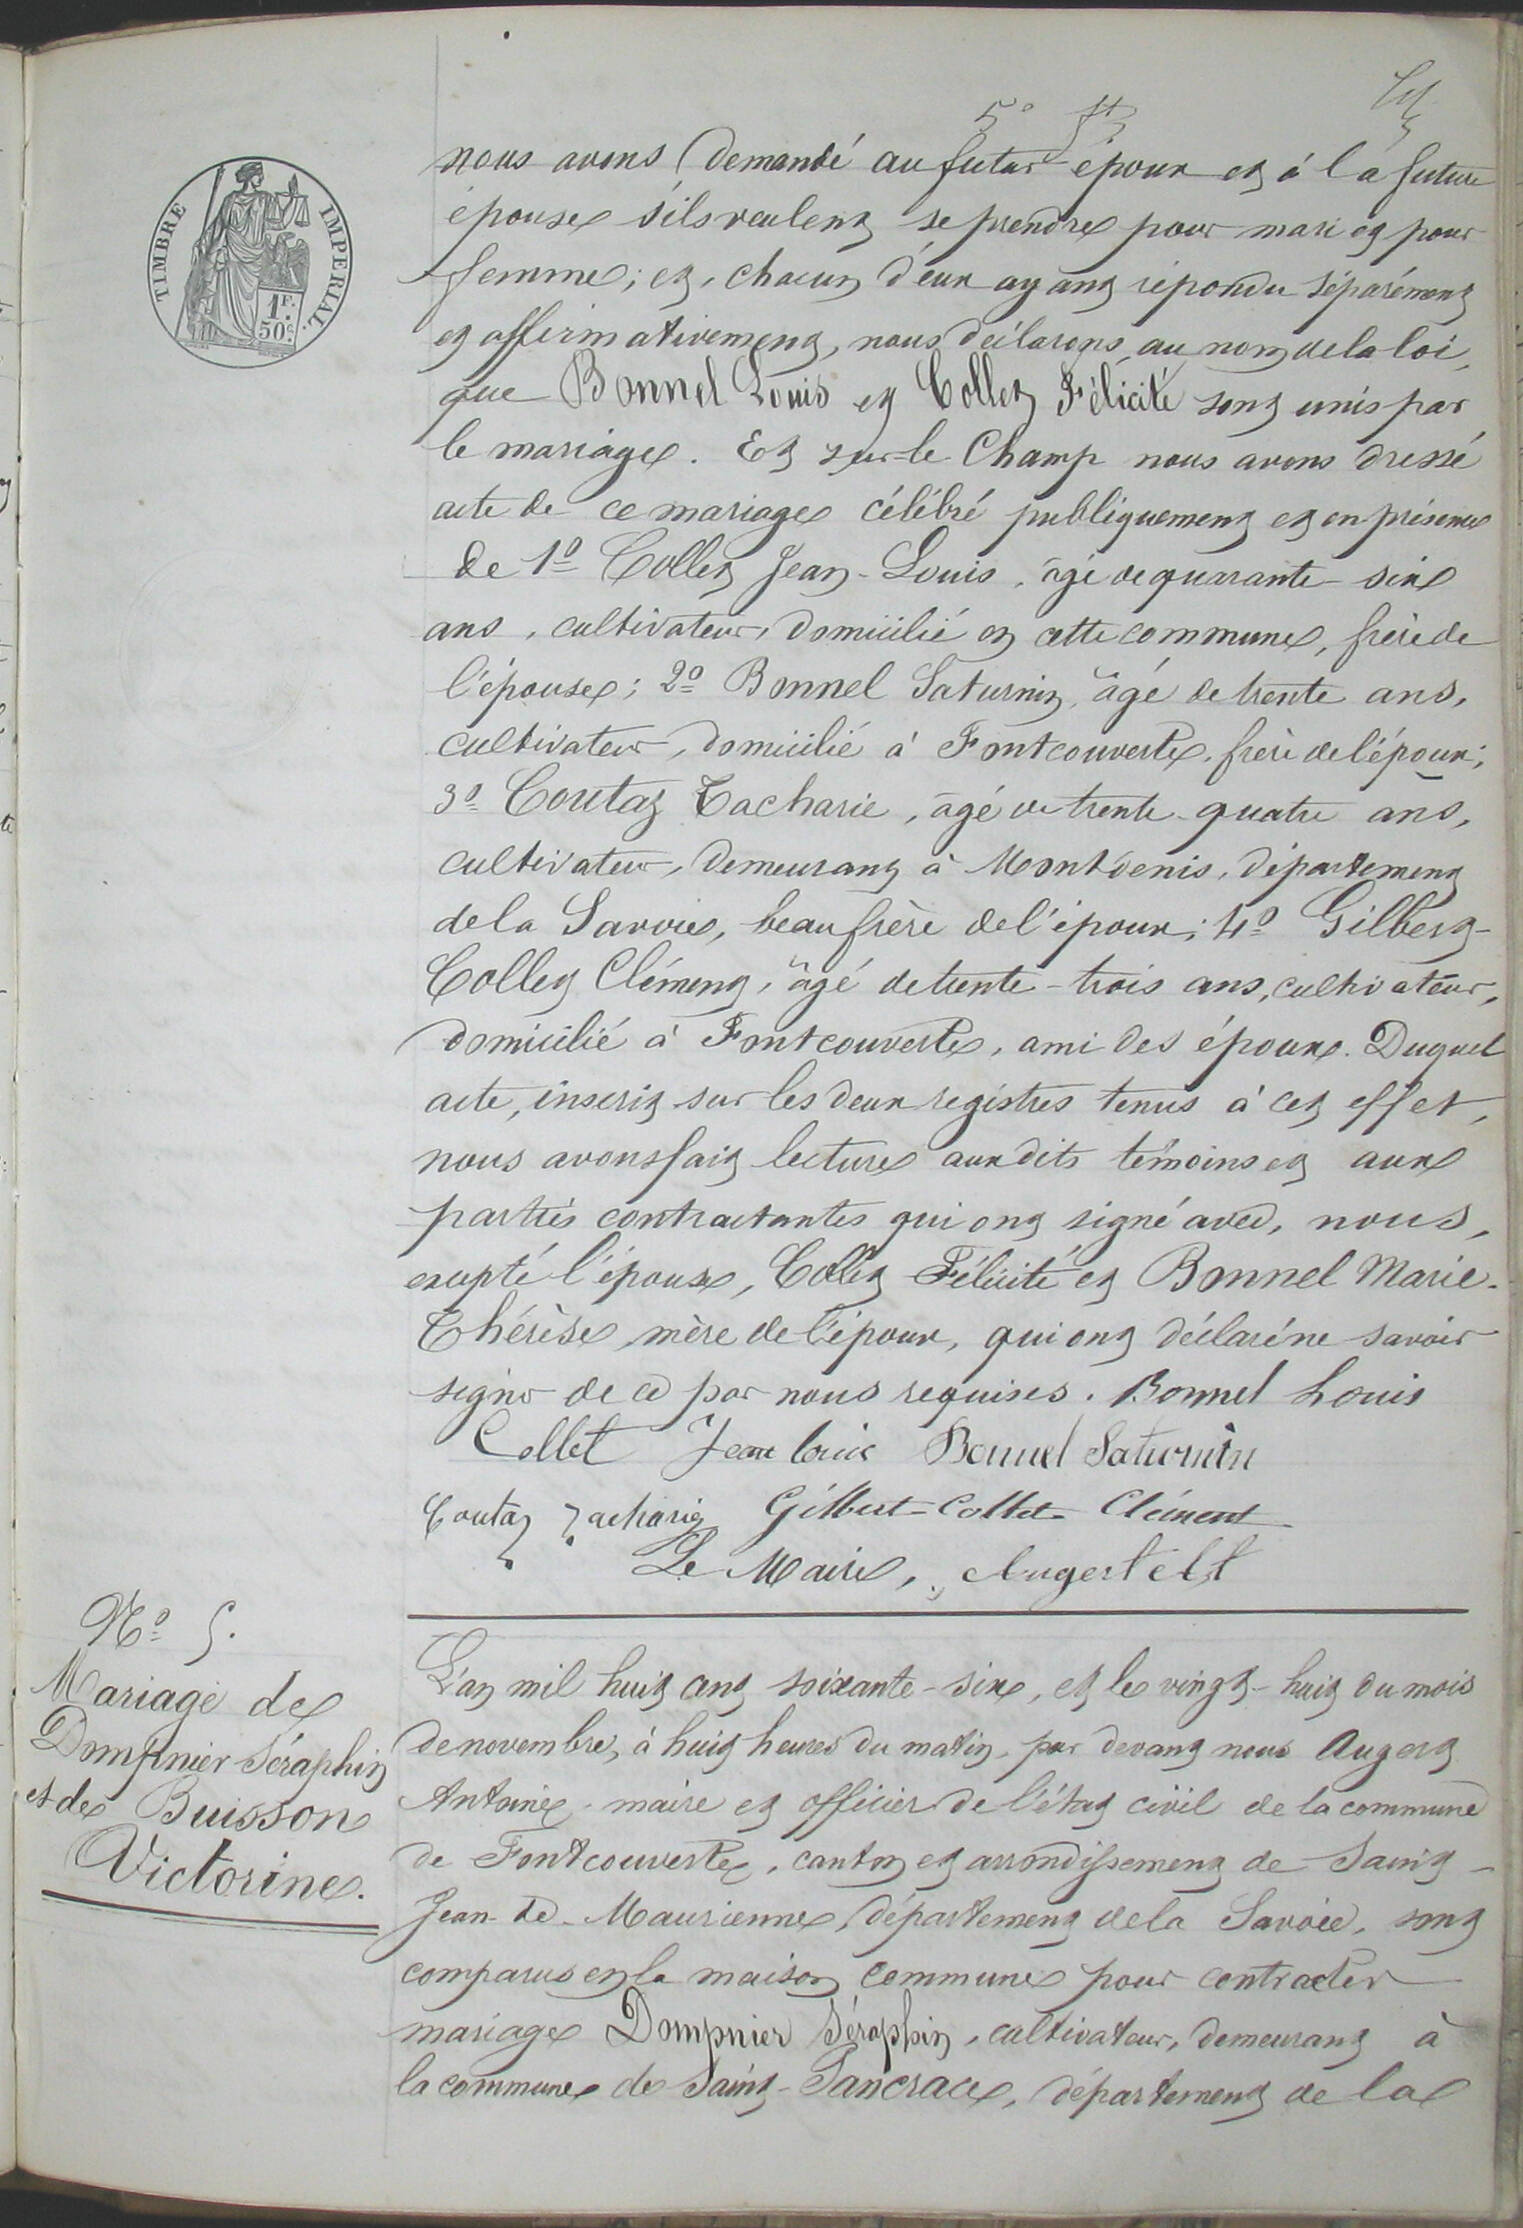 5º ft
TIMBRE IMPERIAL.
1F.
50c.
nous avons demandé au futur époux et à la future
épouse s'ils veulent se prendre pour mari et pour
femme; et, chacun d'eux ayant répondu séparément
et affirmativement, nous déclarons, au nom de la loi,
que Bonnel Louis et Collet Félicité sont unis par
le mariage. Et sur-le Champ nous avons dressé
acte de ce mariage célébré publiquement et en présence
de 1º Collet Jean-Louis, âgé de quarante-six
ans, cultivateur, domicilié en cette commune, frère de
l'épouse; 2º Bonnel Saturnin, âgé de trente ans,
cultivateur, domicilié à Fontcouverte, frère de l'époux;
3º Coutaz Zacharie, âgé de trente-quatre ans,
cultivateur, demeurant à Montdenis, département
de la Savoie, beau frère de l'époux; 4º Gilbert-
Collet Clément, âgé de trente-trois ans, cultivateur,
domicilié à Fontcouverte, ami des époux. Duquel
acte, inscrit sur les deux registres tenus à cet effet,
nous avons fait lecture aux dits témoins et aux
parties contractantes qui ont signé avec, nous,
excepté l'épouse, Collet Félicité et Bonnel Marie-
Thérèse, mère de l'époux, qui ont déclaré ne savoir
signer de ce par nous requises. Bonnel Louis
Collet Jean louis Bonnel Saturnin
Coutaz Zacharie Gilbert-Collet Clément
Le Maire, Augert
Nº 5.
Mariage de
Dompnier Séraphin
et de Buisson
Victorine.
L'an mil huit cent soixante-six, et le vingt-huit du mois
de novembre, à huit heures du matin, par devant nous Augert
Antoine, maire et officier de l'état civil de la commune
de Fontcouverte, canton et arrondissement de Saint-
Jean-de-Maurienne, département de la Savoie, sont
comparus en la maison commune pour contracter
mariage Dompnier Séraphin, cultivateur, demeurant à
la commune de Saint-Pancrace, département de la